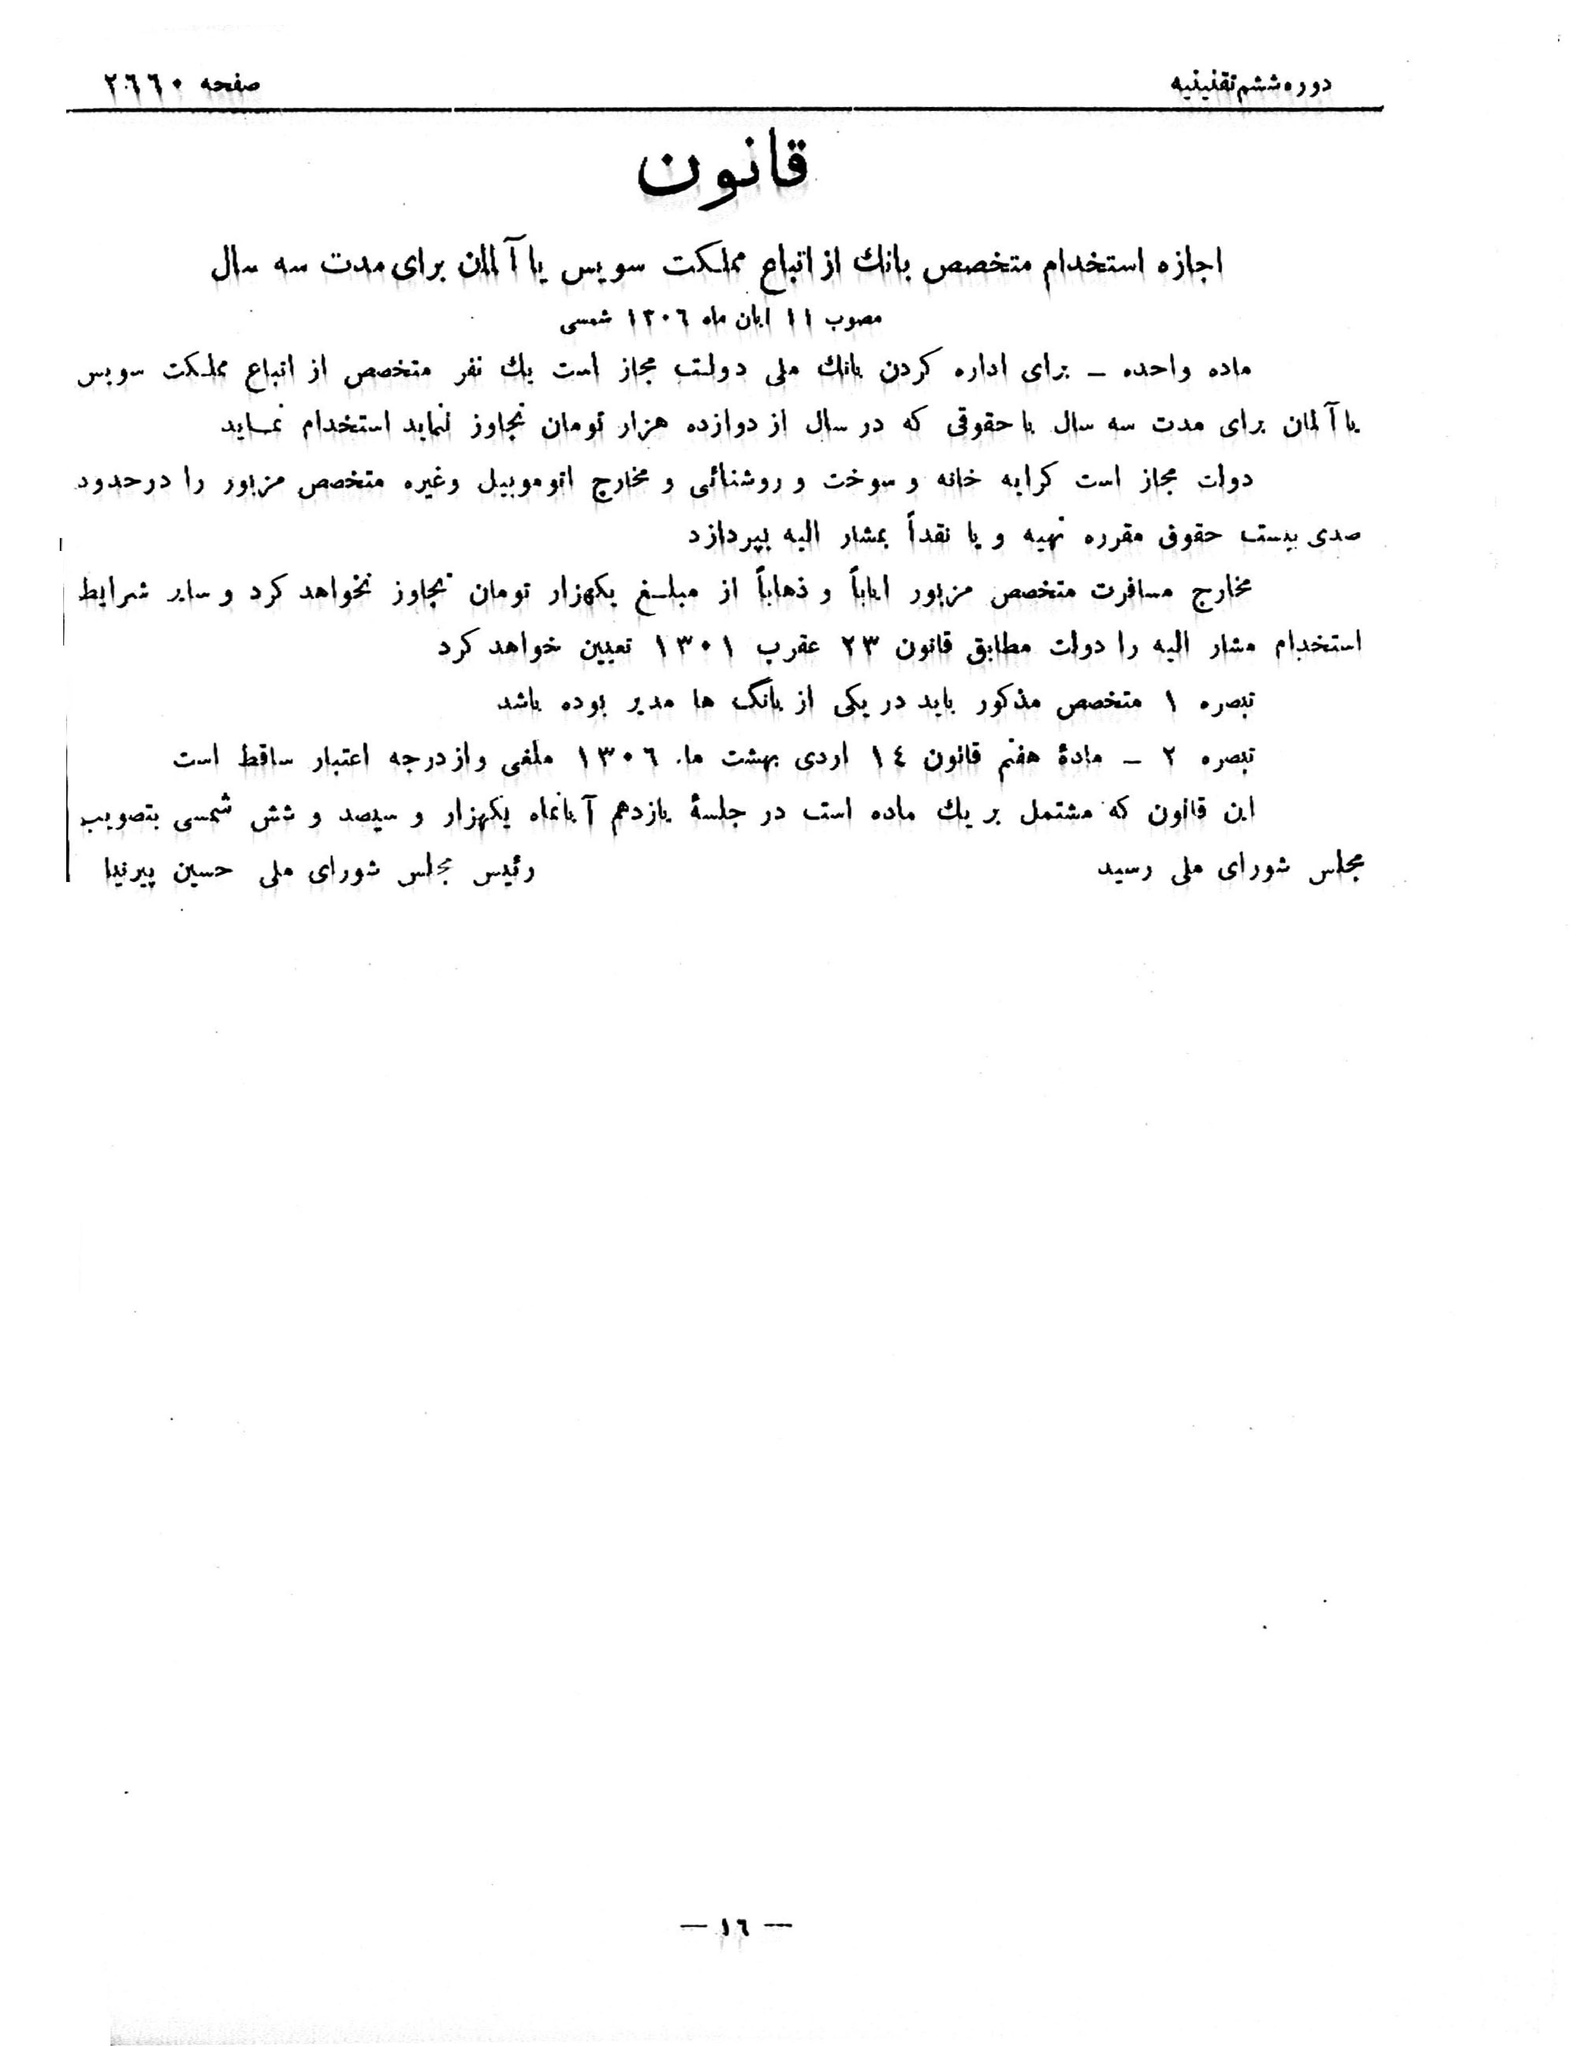 دوره ششم تقنینیه
صفحه ٢٦٦٠
قانون
اجازه استخدام متخصص بانك از اتباع مملكت سویس یا آلمان برای مدت سه سال
مصوب ١١ ابان ماه ١٣٠٦ شمسی
ماده واحده ـ برای اداره كردن بانك ملی دولت مجاز است یك نفر متخصص از اتباع مملكت سویس
یا آلمان برای مدت سه سال با حقوقی كه در سال از دوازده هزار تومان تجاوز ننماید استخدام نماید
دولت مجاز است كرایه خانه و سوخت و روشنائی و مخارج اتوموبیل وغیره متخصص مزبور را در حدود
صدی بیست حقوق مقرره تهیه و یا نقداً بمشار الیه بپردازد
مخارج مسافرت متخصص مزبور ایاباً و ذهاباً از مبلغ یكهزار تومان تجاوز نخواهد كرد و سایر شرایط
استخدام مشار الیه را دولت مطابق قانون ٢٣ عقرب ١٣٠١ تعیین خواهد كرد
تبصره ١ متخصص مذكور باید در یكی از بانگ ها مدیر بوده باشد
تبصره ٢ ـ مادۀ هفتم قانون ١٤ اردی بهشت ماه ١٣٠٦ ملغی و از درجه اعتبار ساقط است
این قانون كه مشتمل بر یك ماده است در جلسۀ یازدهم آبانماه یكهزار و سیصد و شش شمسی بتصویب
مجلس شورای ملی رسید
رئیس مجلس شورای ملی حسین پیرنیا
— ١٦ —